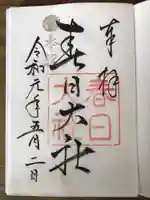 奉拝
春日大社
令和元年五月二日
春日
大社